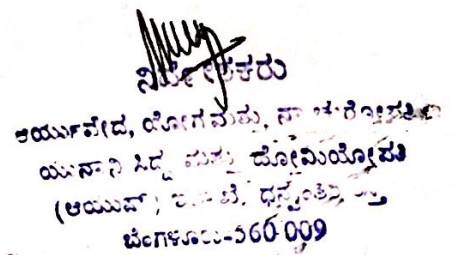 ನಿರ್ದೇಶಕರು
ಆಯುರ್ವೇದ, ಯೋಗ ಮತ್ತು,
ಯುನಾನಿ ಸಿದ್ಧ ಮತ್ತು ಹೋಮಿಯೋಪತಿ
(ಆಯುಷ್) ಧನ್ವಂತ್ರಿ
ಬೆಂಗಳೂರು-560 009